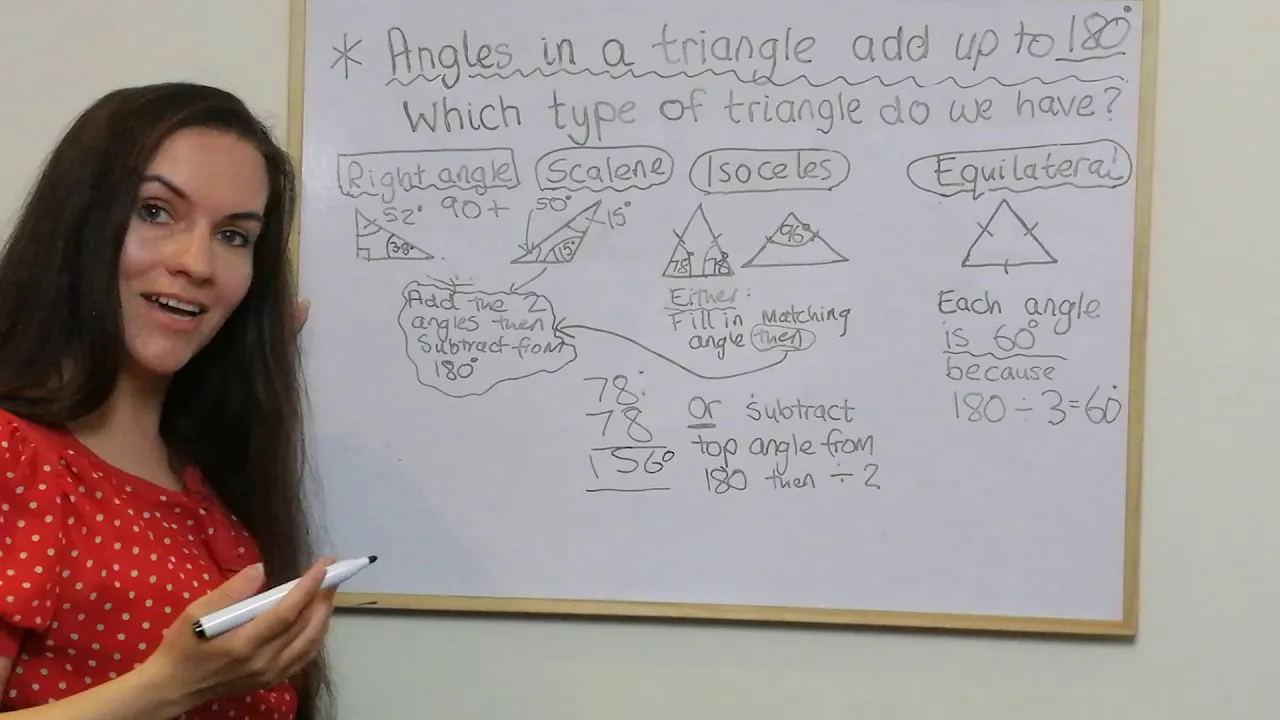 * Angles in a triangle add up to 180°
Which type of triangle do we have?
Right angle
Scalene
Isoceles
Equilateral
52° 90+
38°
50°
15°
15°
78° 78°
96°
Add the 2
angles then
subtract from
180°
Either:
Fill in matching
angle then
78
78
156°
Or subtract
top angle from
180 then ÷ 2
Each angle
is 60°
because
180 ÷ 3 = 60°